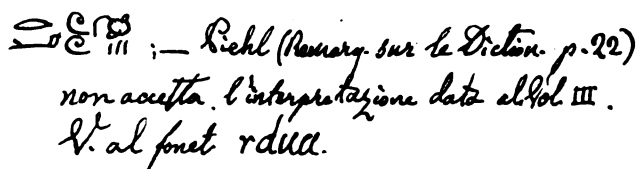 ;— Piehl (Remarq. sur le Diction. p. 22)
non accetta l'interpretazione data al Vol III.
V. al fonet rduu.